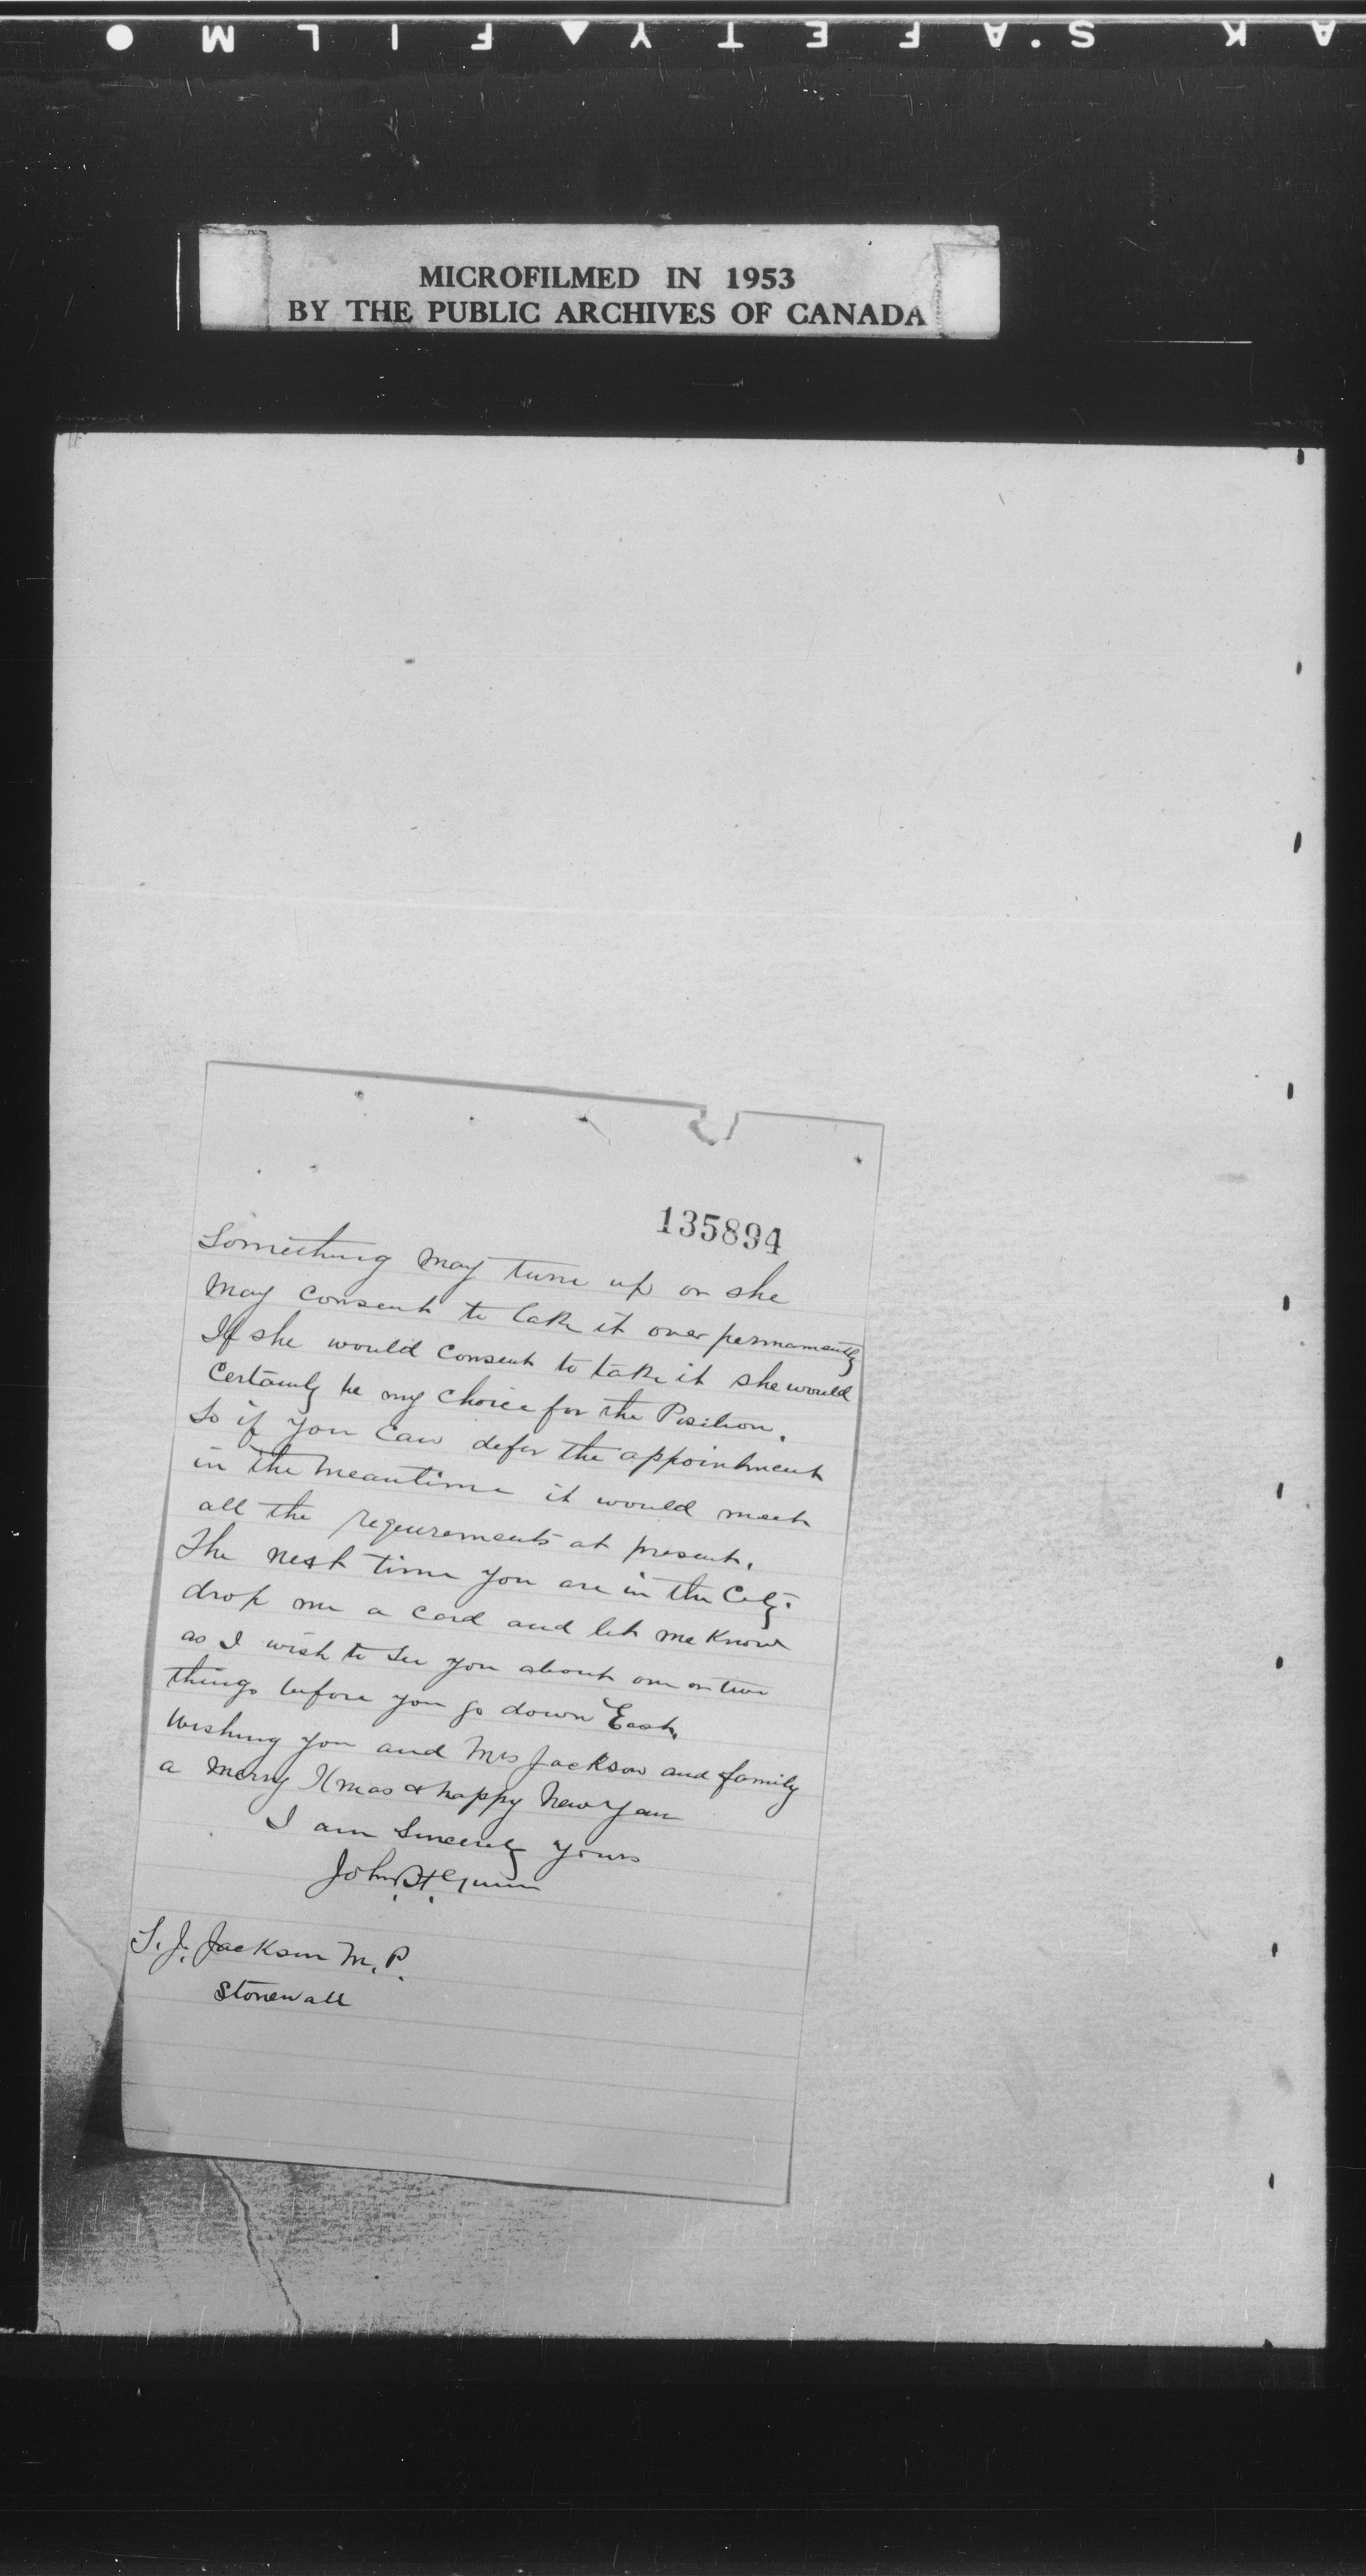 KODAK SAFETY FILM
MICROFILMED IN 1953
BY THE PUBLIC ARCHIVES OF CANADA
135894
Something may turn up or she
may consent to take it over permanently
If she would consent to take it she would
certainly be my choice for the Position.
So if you can defer the appointment
in the meantime it would meet
all the requirements at present.
The next time you are in the City.
drop me a card and let me know
as I wish to see you about one or two
things before you go down East.
Wishing you and Mrs Jackson and family
a merry Xmas & happy New Year
I am Sincerely yours
John H. Gunn
S. J. Jackson M. P.
Stonewall